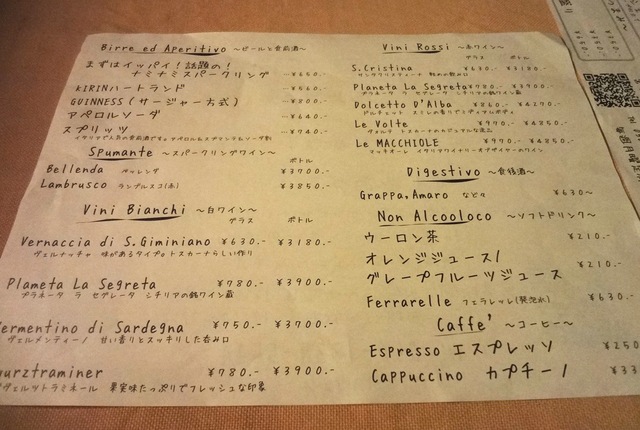 Birre ed Aperitivo ～ビールと食前酒～
まずはイッパイ！話題の！
ナミナミスパークリング ¥650.-
KIRINハートランド ¥560.-
GUINNESS（サージャー方式） ¥800.-
アペロルソーダ ¥640.-
スプリッツ ¥740.-
Spumante ～スパークリングワイン～
ボトル
Bellenda ベッレンダ ¥3700.-
Lambrusco ランブルスコ(赤) ¥3850.-
Vini Bianchi ～白ワイン～
グラス ボトル
Vernaccia di S.Giminiano ¥630.- ¥3180.-
ヴェルナッチャ 味があるタイプ。トスカーナらしい作り
Plameta La Segreta ¥780.- ¥3900.-
プラネータ ラ セグレータ シチリアの銘ワイン蔵
ermentino di Sardegna ¥750.- ¥3700.-
ヴェルメンティーノ 甘い香りとスッキリした呑み口
urztraminer ¥780.- ¥3900.-
ヴェルツトラミネール 果実味たっぷりでフレッシュな印象
Vini Rossi ～赤ワイン～
グラス ボトル
S.Cristina ¥630.- ¥3180.-
Planeta La Segreta ¥780.- ¥3900.-
プラネータ ラ セグレータ シチリアの銘ワイン蔵
Dolcetto D'Alba ¥860.- ¥4270.-
ドルチェット スミレの香りとミディアムボディ
Le Volte ¥970.- ¥4850.-
Le MACCHIOLE ¥970.- ¥4850.-
マッキオーレ イタリアワイナリーオブザイヤーのワイン
Digestivo ～食後酒～
Grappa.Amaro など々 ¥630～
Non Alcooloco ～ソフトドリンク～
ウーロン茶 ¥210.-
オレンジジュース/
グレープフルーツジュース ¥210.-
Ferrarelle フェラレッレ(発泡水) ¥630.-
Caffe' ～コーヒー～
Espresso エスプレッソ ¥250
Cappuccino カプチーノ ¥33